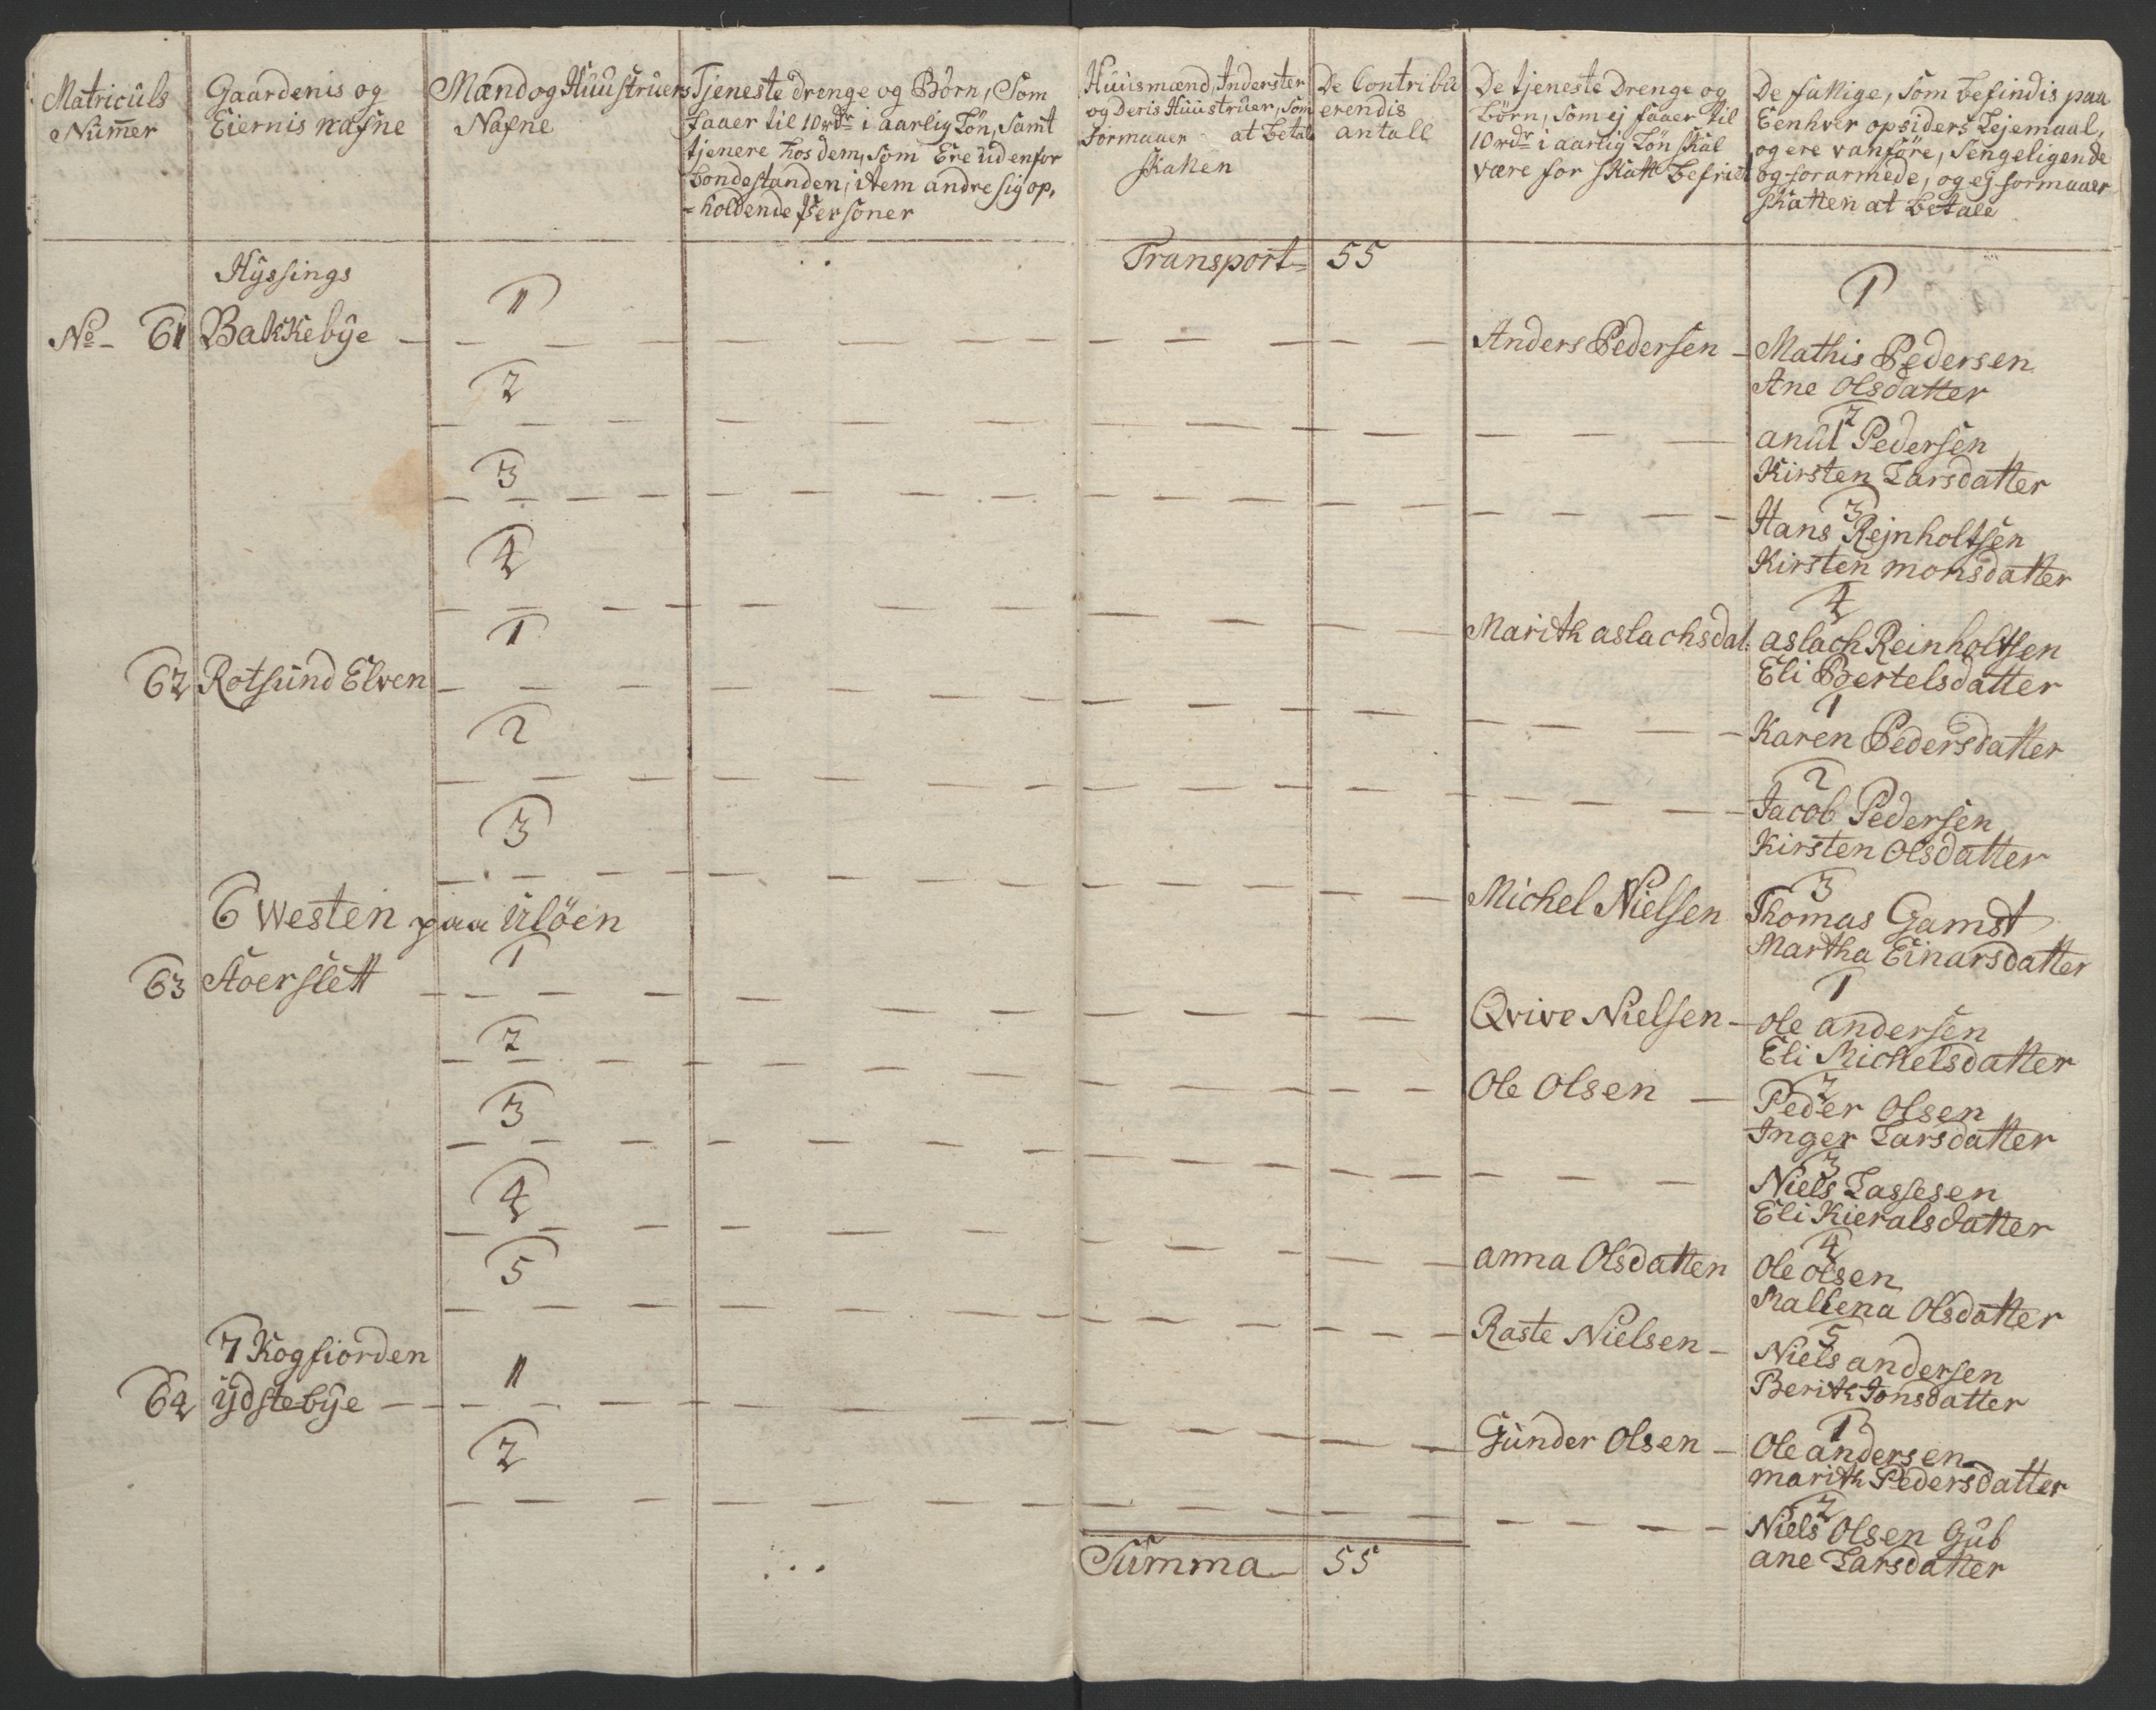 Matriculs
Nummer
Gaardenis og
Eiernis nafne
Mænd og Huustruers
Nafne
Tjeneste drenge og Börn, Som
faaer til 10 rdr i aarlig Lön, Samt
tjenere hos dem, som Ere udenfor
bondestanden, item andre sig op,
=holdende Personer
Huusmænd, Inderster
og Deris Huustruer, Som
formaaer at betale
skatten
De Contribu
erendis
antall
De tjeneste Drenge og
Börn, Som ej faaer til
10 rdr i aarlig Lön skal
være for skatt befriet
De fattige, Som befindis paa
Eenhver opsiders Lejemaal,
og ere vanföre, Sengeligende
og forarmede, og ej formaaer
skatten at betale
Transport= 55
Hyssings
1
1
No- 61 Bakkebÿe
Anders Pedersen - Mathis Pedersen
Ane Olsdatter
2
2
anul Pedersen
Kirsten Larsdatter
3
3
Hans Rejnholtsen
Kirsten monsdatter
4
4
Marith aslachsdat: aslach Reinholtsen
Eli Bertelsdatter
1
1
62 Rotsund Elven
Karen Pedersdatter
2
2
Jacob Pedersen
Kirsten Olsdatter
3
3
Michel Nielsen Thomas Gamst
Martha Einarsdatter
6 Westen paa Ulöen
1
1
63 Stoerslett
Qvive Nielsen - ole andersen
Eli Michelsdatter
2
2
Ole Olsen - Peder Olsen
Inger Larsdatter
3
3
Niels Lassesen
Eli Kieralsdatter
4
4
anna Olsdatter Ole olsen
Mallena Olsdatter
5
5
Raste Nielsen - Niels andersen
Berith Jonsdatter
7 Kogfiorden
1
1
64 ÿdstebÿe
Gunder Olsen - Ole andersen
marith Pedersdatter
2
2
Niels Olsen Gub
ane Larsdatter
Summa 55